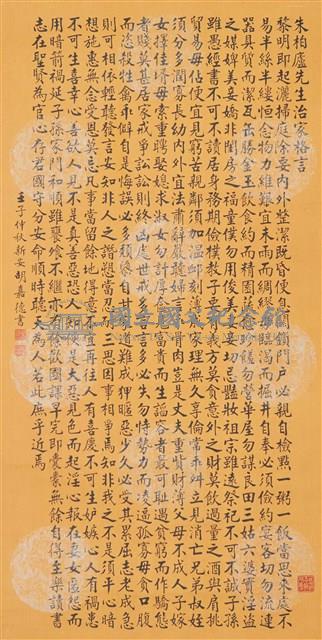 朱柏廬先生治家格言
黎明即起灑掃庭除要內外整潔既昏便息關鎖門戶必親自檢點一粥一飯當思來處不
易半絲半縷恒念物力維艱宜未雨而綢繆毋臨渴而掘井自奉必須儉約宴客切勿流連
器具質而潔瓦缶勝金玉飲食約而精園蔬愈珍饈勿營華屋勿謀良田三姑六婆實淫盜
之媒婢美妾嬌非閨房之福童僕勿用俊美妻妾切忌豔妝祖宗雖遠祭祀不可不誠子孫
雖愚經書不可不讀居身務期儉樸教子要有義方莫貪意外之財莫飲過量之酒與肩挑
貿易毋佔便宜見窮苦親鄰須加溫卹刻薄成家理無久享倫常乖舛立見消亡兄弟叔姪
須分多潤寡長幼內外宜法肅辭嚴聽婦言乖骨肉豈是丈夫重貲財薄父母不成人子嫁
女擇佳婿毋索重聘娶媳求淑女勿計厚奩見富貴而生諂容者最可恥遇貧窮而作驕態
者賤莫甚居家戒爭訟訟則終凶處世戒多言言多必失勿恃勢力而凌逼孤寡毋貪口腹
而恣殺牲禽乖僻自是悔誤必多頹惰自甘家道難成狎暱惡少久必受其累屈志老成急
則可相依輕聽發言安知非人之譖愬當忍耐三思因事相爭焉知非我之不是須平心暗
想施惠無念受恩莫忘凡事當留餘地得意不宜再往人有喜慶不可生妒嫉心人有禍患
不可生喜幸心善欲人見不是真善惡恐人知便是大惡見色而起淫心報在妻女匿怨而
用暗箭禍延子孫家門和順雖饔飧不繼亦有餘歡國課早完即囊橐無餘自得至樂讀書
志在聖賢為官心存君國守分安命順時聽天為人若此庶乎近焉
壬子仲秋新安胡嘉德書
國立國父紀念館